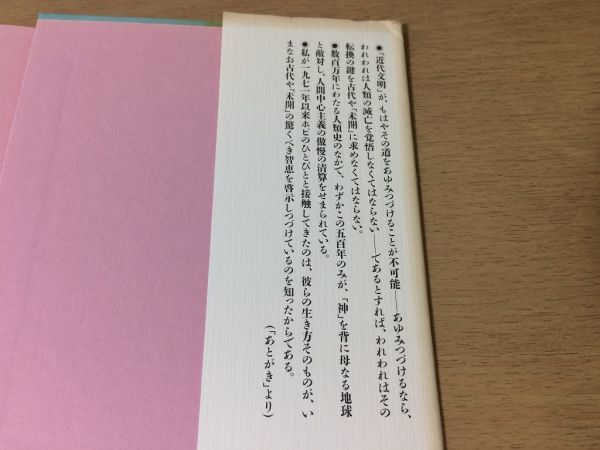 ●「近代文明」が、もはやその道をあゆみつづけることが不可能――あゆみつづけるなら、
われわれは人類の滅亡を覚悟しなくてはならない――であるとすれば、われわれはその
転換の鍵を古代や「未開」に求めなくてはならない。
●数百万年にわたる人類史のなかで、わずかこの五百年のみが、「神」を背に母なる地球
と敵対し、人間中心主義の傲慢の清算をせまられている。
●私が一九七一年以来ホピのひとびとと接触してきたのは、彼らの生き方そのものが、い
まなお古代や「未開」の驚くべき智恵を啓示しつづけているのを知ったからである。
(「あとがき」より)